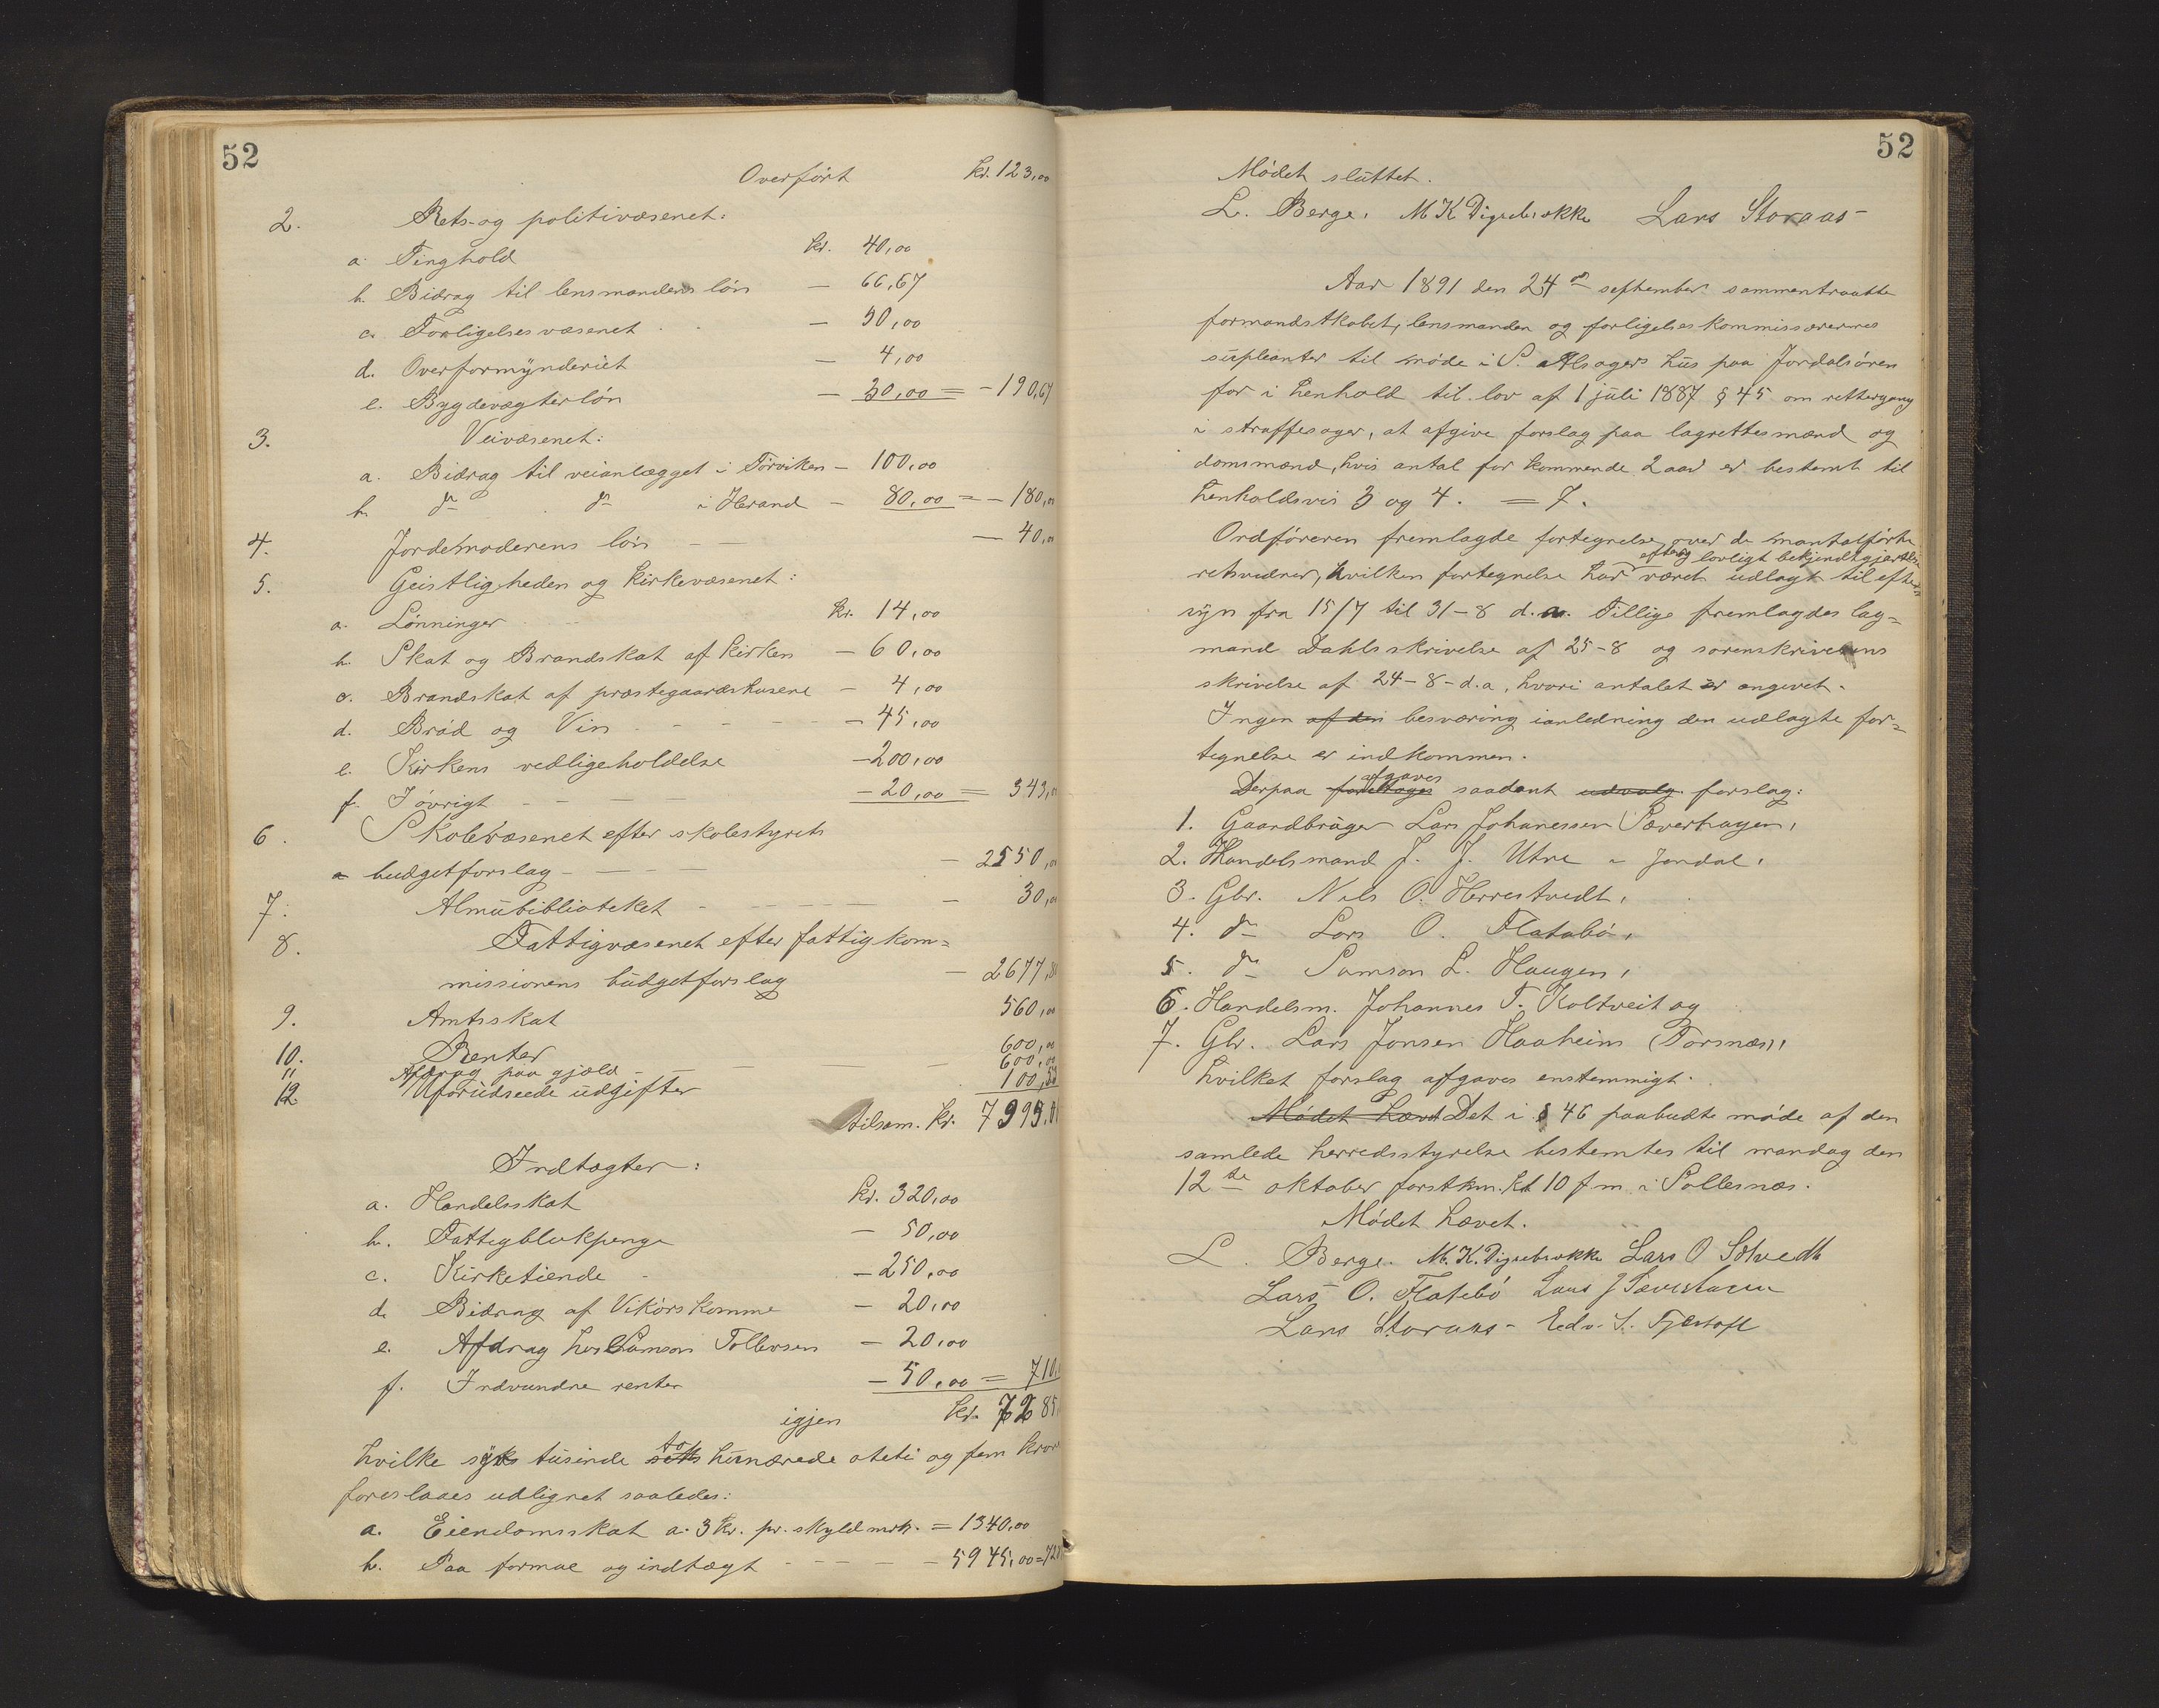 52
Overført kr. 123,00
2. Rets- og politivæsenet:
a. Tinghold kr. 40,00
b. Bidrag til lensmandens løn — 66,67
c. Forligelsesvæsenet — 50,00
d. Overformynderiet — 4,00
e. Bygdevægterløn — 30,00 = — 190,67
3. Veivæsenet:
a. Bidrag til veianlægget i Tørviken — 100,00
b. do do i Herand — 80,00 = — 180,00
4. Jordemoderens løn — — — 40,00
5. Geistligheden og kirkevæsenet:
a. Lønninger kr. 14,00
b. Skat og Brandskat af kirken — 60,00
c. Brandskat af præstegaardshusene — 4,00
d. Brød og Vin — 45,00
e. Kirkens vedligeholdelse — 200,00
f. I øvrigt — — — 20,00 = 343,00
6. Skolevæsenet efter skolestyrets
a budgetforslag — — — — 2550,00
7. Almubiblioteket — — — 30,00
8. Fattigvæsenet efter fattigkom=
missionens budgetforslag — 2677,
9. Amtsskat 560,00
10. Renter 600,00
11 Afdrag paa gjæld — — — 600,00
12. Uforudseede udgifter 100,
tilsam. kr. 7995,
Indtægter:
a. Handelsskat kr. 320,00
b. Fattigblokpenge — 50,00
c. Kirketiende — 250,00
d. Bidrag af Vikørs komme — 20,00
e. Afdrag hos Samson Tollevsen — 20,00
f. Indvundne renter — 50,00 = 710,
igjen kr. 7285,
hvilke syv tusinde to hundrede oteti og fem kron
foreslaaes udlignet saaledes:
a. Eiendomsskat a. 3 kr. pr. skyldmrk. = 1340,00
b. Paa formue og indtægt — — — — 5945,00 = 728
52
Mødet sluttet.
L. Berge. M K Digrebrække Lars Storaas
Aar 1891 den 24de september sammentraatte
formandskabet, lensmanden og forligelseskommissærernes
supleanter til møde i S. Alsagers hus paa Jondalsøren
for i henhold til lov af 1 juli 1887 § 45 om rettergang
i straffesager, at afgive forslag paa lagrettesmænd og
domsmænd, hvis antal for kommende 2 aar er bestemt til
henholdsvis 3 og 4. = 7.
Ordføreren fremlagde fortegnelse over de mantalførte
efter lovligt bekjendtgjørelse
retsvidner, hvilken fortegnelse har været udlagt til efter
syn fra 15/7 til 31-8 d.a. Tillige fremlagdes lag=
mand Dahls skrivelse af 25-8 og sorenskriverens
skrivelse af 24-8-d.a, hvori antalet er angivet.
Ingen af den besværing ianledning den udlagte for=
tegnelse er indkommen.
afgaves
Derpaa foretoges saadant udvalg forslag:
1. Gaardbruger Lars Johanessen Sæverhagen,
2. Handelsmand J. J. Utne i Jondal,
3. Gbr. Nils O. Herrestvedt,
4. do Lars O. Flatabø,
5. do Samson L. Haugen,
6. Handelsm. Johannes T. Koltveit og
7. Gbr. Lars Jonsen Haaheim (Torsnæs),
hvilket forslag afgaves enstemmigt.
Mødet hævet Det i § 46 paabudte møde af den
samlede herredsstyrelse bestemtes til mandag den
12te oktober førstkm. kl 10 fm i Sollesnæs.
Mødet hævet.
L. Berge. M. K. Digrebrække Lars O. Selvedt
Lars O. Flatebø Lars J Sæverhagen
Lars Storaas - Edv. S. Tjærtoft